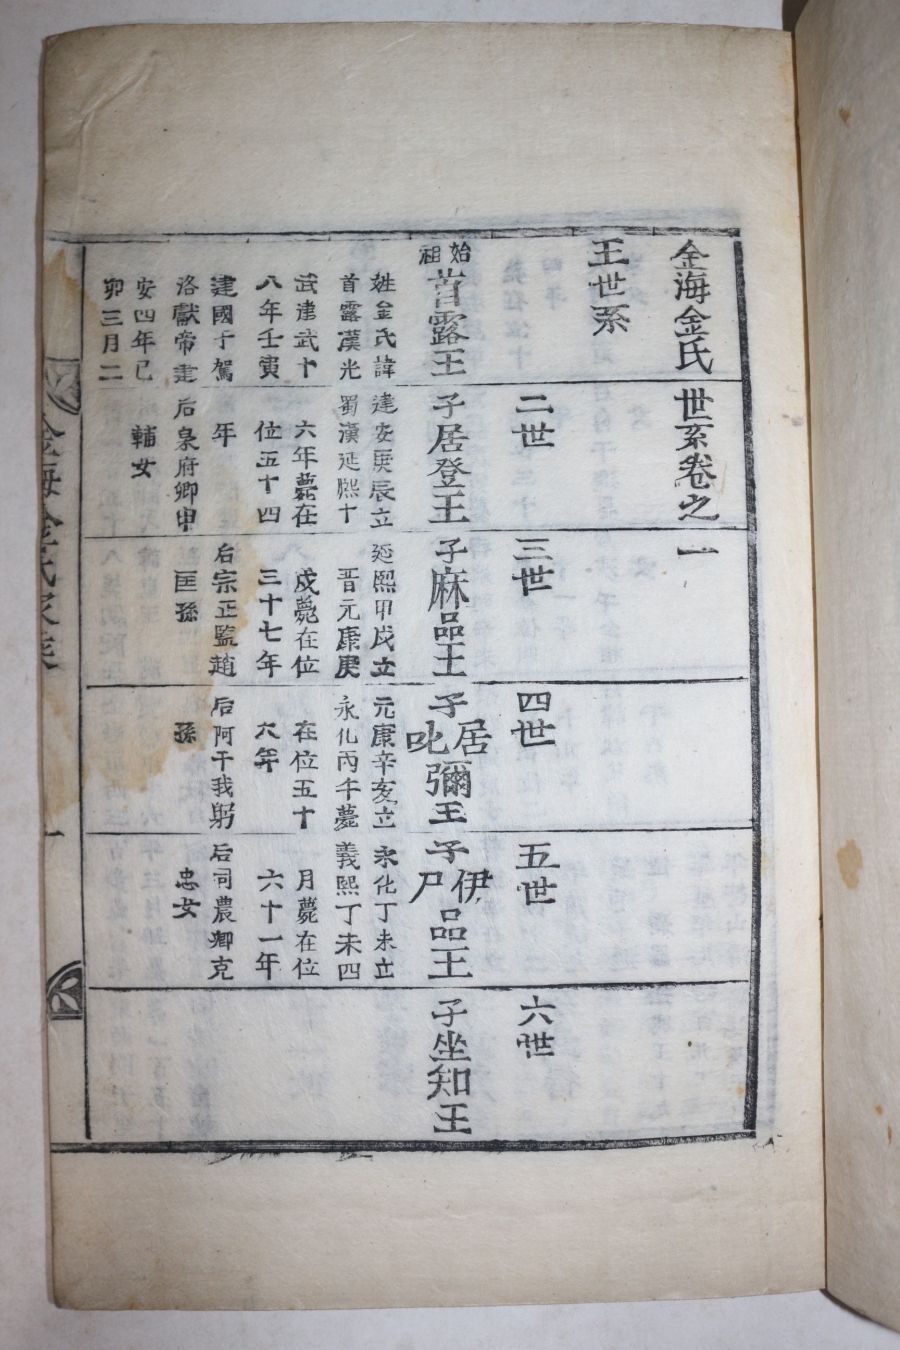 金海金氏世系卷之一
王世系
始祖首露王
姓金氏諱
首露漢光
武建武十
八年壬寅
建國于駕
洛獻帝建
安四年己
卯三月二
二世
子居登王
建安庚辰立
蜀漢延熙十
六年薨在
位五十四
年
后泉府卿申
輔女
三世
子麻品王
延熙甲戌立
晋元康庚
戌薨在位
三十七年
后宗正監趙
匡孫
四世
子居叱彌王
元康辛亥立
永化丙午薨
在位五十
六年
后阿干我躬
孫
五世
子伊尸品王
永化丁未立
義熙丁未四
月薨在位
六十一年
后司農卿克
忠女
六世
子坐知王
金海金氏家乘
一